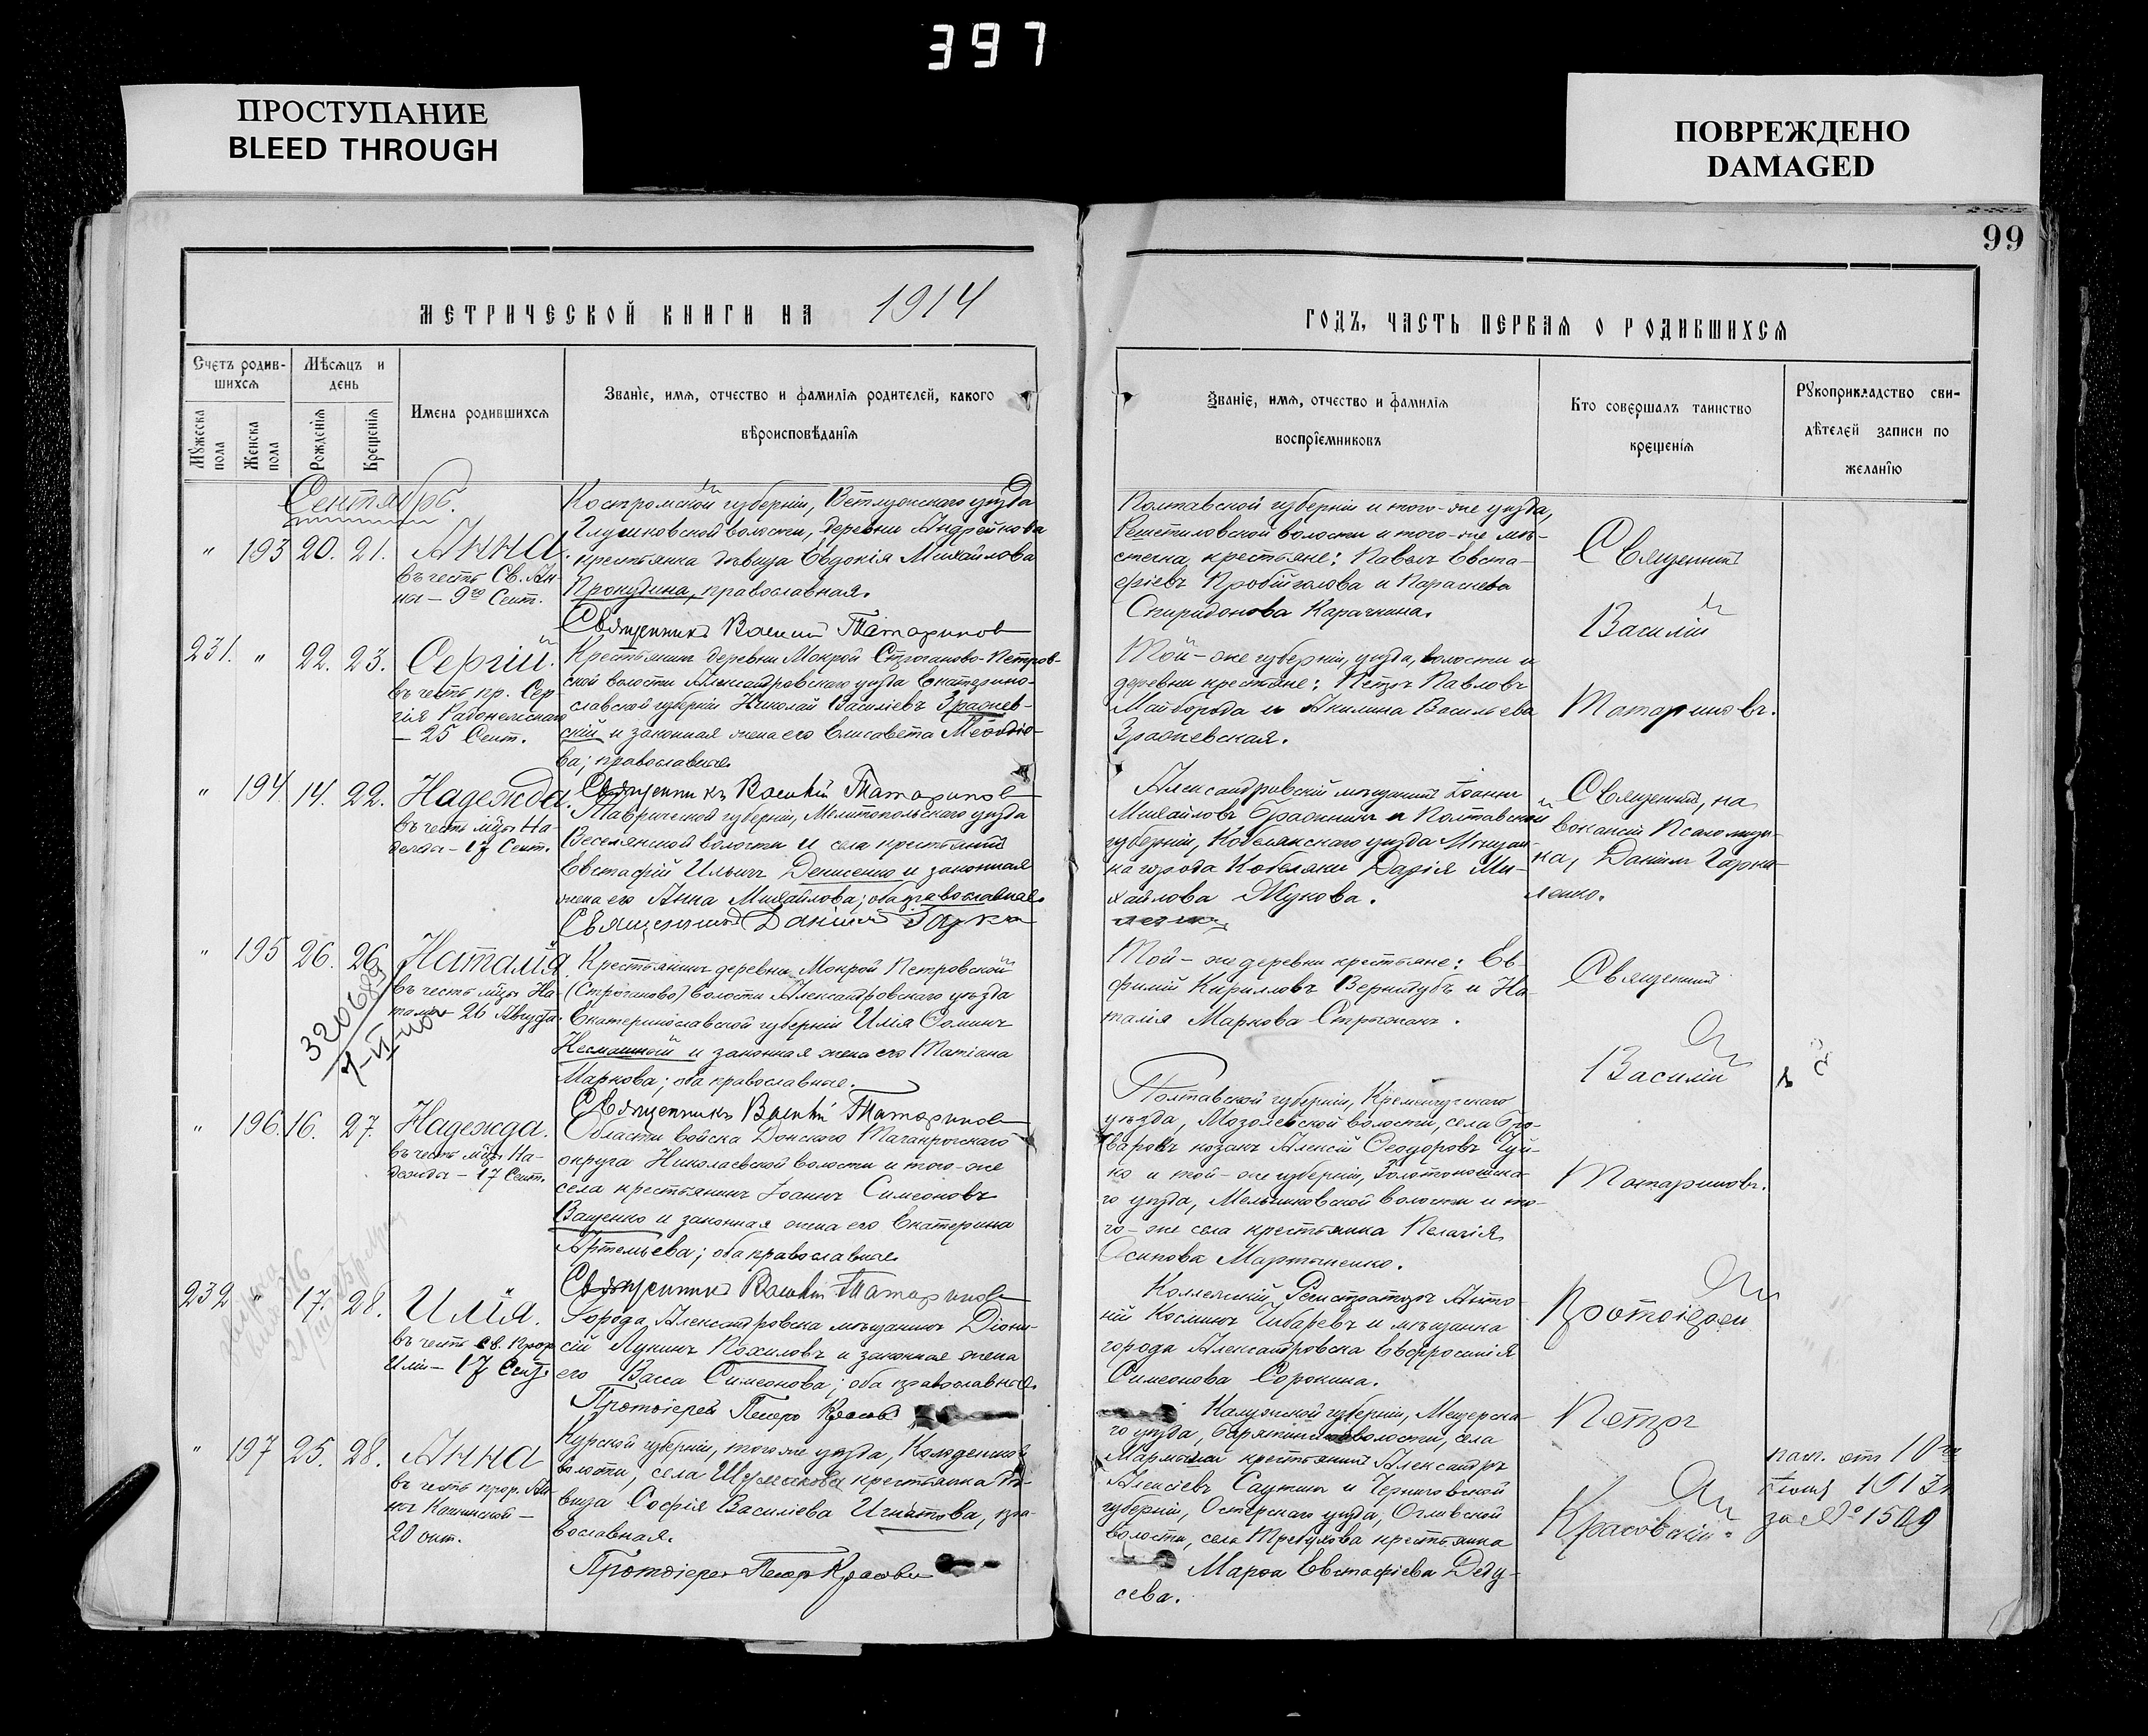 397
ПРОСТУПАНИЕ
BLEED THROUGH
ПОВРЕЖДЕНО
DAMAGED
99
МЕТРИЧЕСКОЙ КНИГИ НА 1914
ГОДЪ, ЧАСТЬ ПЕРВАЯ О РОДИВШИХСЯ
Счетъ родив-
шихся
Мѣсяцъ и
день
Мужеска
пола
Женска
пола
Рожденія
Крещенія
Имена родившихся
Званіе, имя, отчество и фамилія родителей, какого
вѣроисповѣданія
Званіе, имя, отчество и фамилія
воспріемниковъ
Кто совершалъ таинство
крещенія
Рукоприкладство сви-
дѣтелей записи по
желанію
Сентябрь.
" 193 20. 21. Анна.
въ честь Св. Ан-
ны – 9го Сент.
Костромской губерніи, Ветлужскаго уѣзда
волости, деревни Андрейкова
крестьянка дѣвица Евдокія Михайлова
Прокудина, православная.
Священникъ Василій Татариновъ
Полтавской губерніи и того-же уѣзда,
Решетиловской волости и того-же мѣ-
стечка, крестьяне: Павелъ Евста-
фіевъ и Параскева
Спиридонова Карачкина.
Священникъ
Василій
Татариновъ.
231. " 22. 23. Сергій.
въ честь пр. Сер-
гія Радонежскаго
– 25 Сент.
Крестьянинъ деревни Мокрой Строганово-Петров-
ской волости Александровскаго уѣзда Екатерино-
славской губерніи Николай Василіевъ Зражев-
скій и законная жена его Елисавета Меѳодіе-
ва; православные
Священникъ Василій Татариновъ
Той-же губерніи, уѣзда, волости и
деревни крестьяне: Петръ Павловъ
Майборода и Акилина Васильева
Зражевская.
" 194. 14. 22. Надежда.
въ честь мцы На-
дежды – 17 Сент.
Таврической губерніи, Мелитопольскаго уѣзда
Веселянской волости и села крестьянинъ
Евстафій Ильичъ Денисенко и законная
жена его Анна Михайлова; оба православные
Священникъ Даніилъ
Александровскій мѣщанинъ Іоаннъ
Михайловъ и Полтавской
губерніи, Кобелякскаго уѣзда Мѣщан-
ка города Кобеляки Дарія Ми-
хайлова Жукова.
Священникъ, на
вакансіи Псаломщи-
ка, Даніилъ
" 195 26. 26. Наталія.
въ честь мцы На-
таліи 26 Августа.
Крестьянинъ деревни Мокрой Петровской
(Строганово) волости Александровскаго уѣзда
Екатеринославской губерніи Илія Ѳоминъ
Несмашный и законная жена его Татіана
Маркова; оба православные.
Священникъ Василій Татариновъ
Той-же деревни крестьяне: Ев-
фимій Кирилловъ Вернидубъ и На-
талія Маркова
Священникъ
Василій
Татариновъ.
" 196. 16. 27. Надежда.
въ честь мцы На-
дежды – 17 Сент.
Области войска Донскаго Таганрогскаго
округа Николаевской волости и того-же
села крестьянинъ Іоаннъ Симеоновъ
Ващенко и законная жена его Екатерина
Артемьева; оба православные
Священникъ Василій Татариновъ
Полтавской губерніи, Кременчугскаго
уѣзда, волости, села Бро-
варокъ козакъ Алексій Ѳеодоровъ Чуй-
ко и той-же губерніи, Золотоношска-
го уѣзда, Мельниковской волости и то-
го-же села крестьянка Пелагія
Осипова Мартыненко.
232 " 17. 28. Илія.
въ честь св. прор.
Иліи – 17 Сент.
Города Александровска мѣщанинъ Діони-
сій Лукинъ Похиловъ и законная жена
его Васса Симеонова; оба православные
Протоіерей Петръ
Коллежскій Регистраторъ Анто-
ній Косминъ Чибаревъ и мѣщанка
города Александровска Евфросинія
Симеонова Сорокина.
Протоіерей
Петръ
Красовскій.
" 197 25. 28. Анна
въ честь прор. Ан-
ны Кашинской –
20 окт.
Курской губерніи, того же уѣзда,
волости, села крестьянка дѣ-
вица Софія Василіева Игнатова, пра-
вославная.
Протоіерей Петръ
Калужской губерніи, Мещовска-
го уѣзда, волости, села
крестьянинъ Александръ
Алексіевъ и Черниговской
губерніи, Остерскаго уѣзда,
волости, села Требухова крестьянка
Марѳа Евстафіева Деду-
сева.
пасп. отъ 10го
1913г
за № 1509